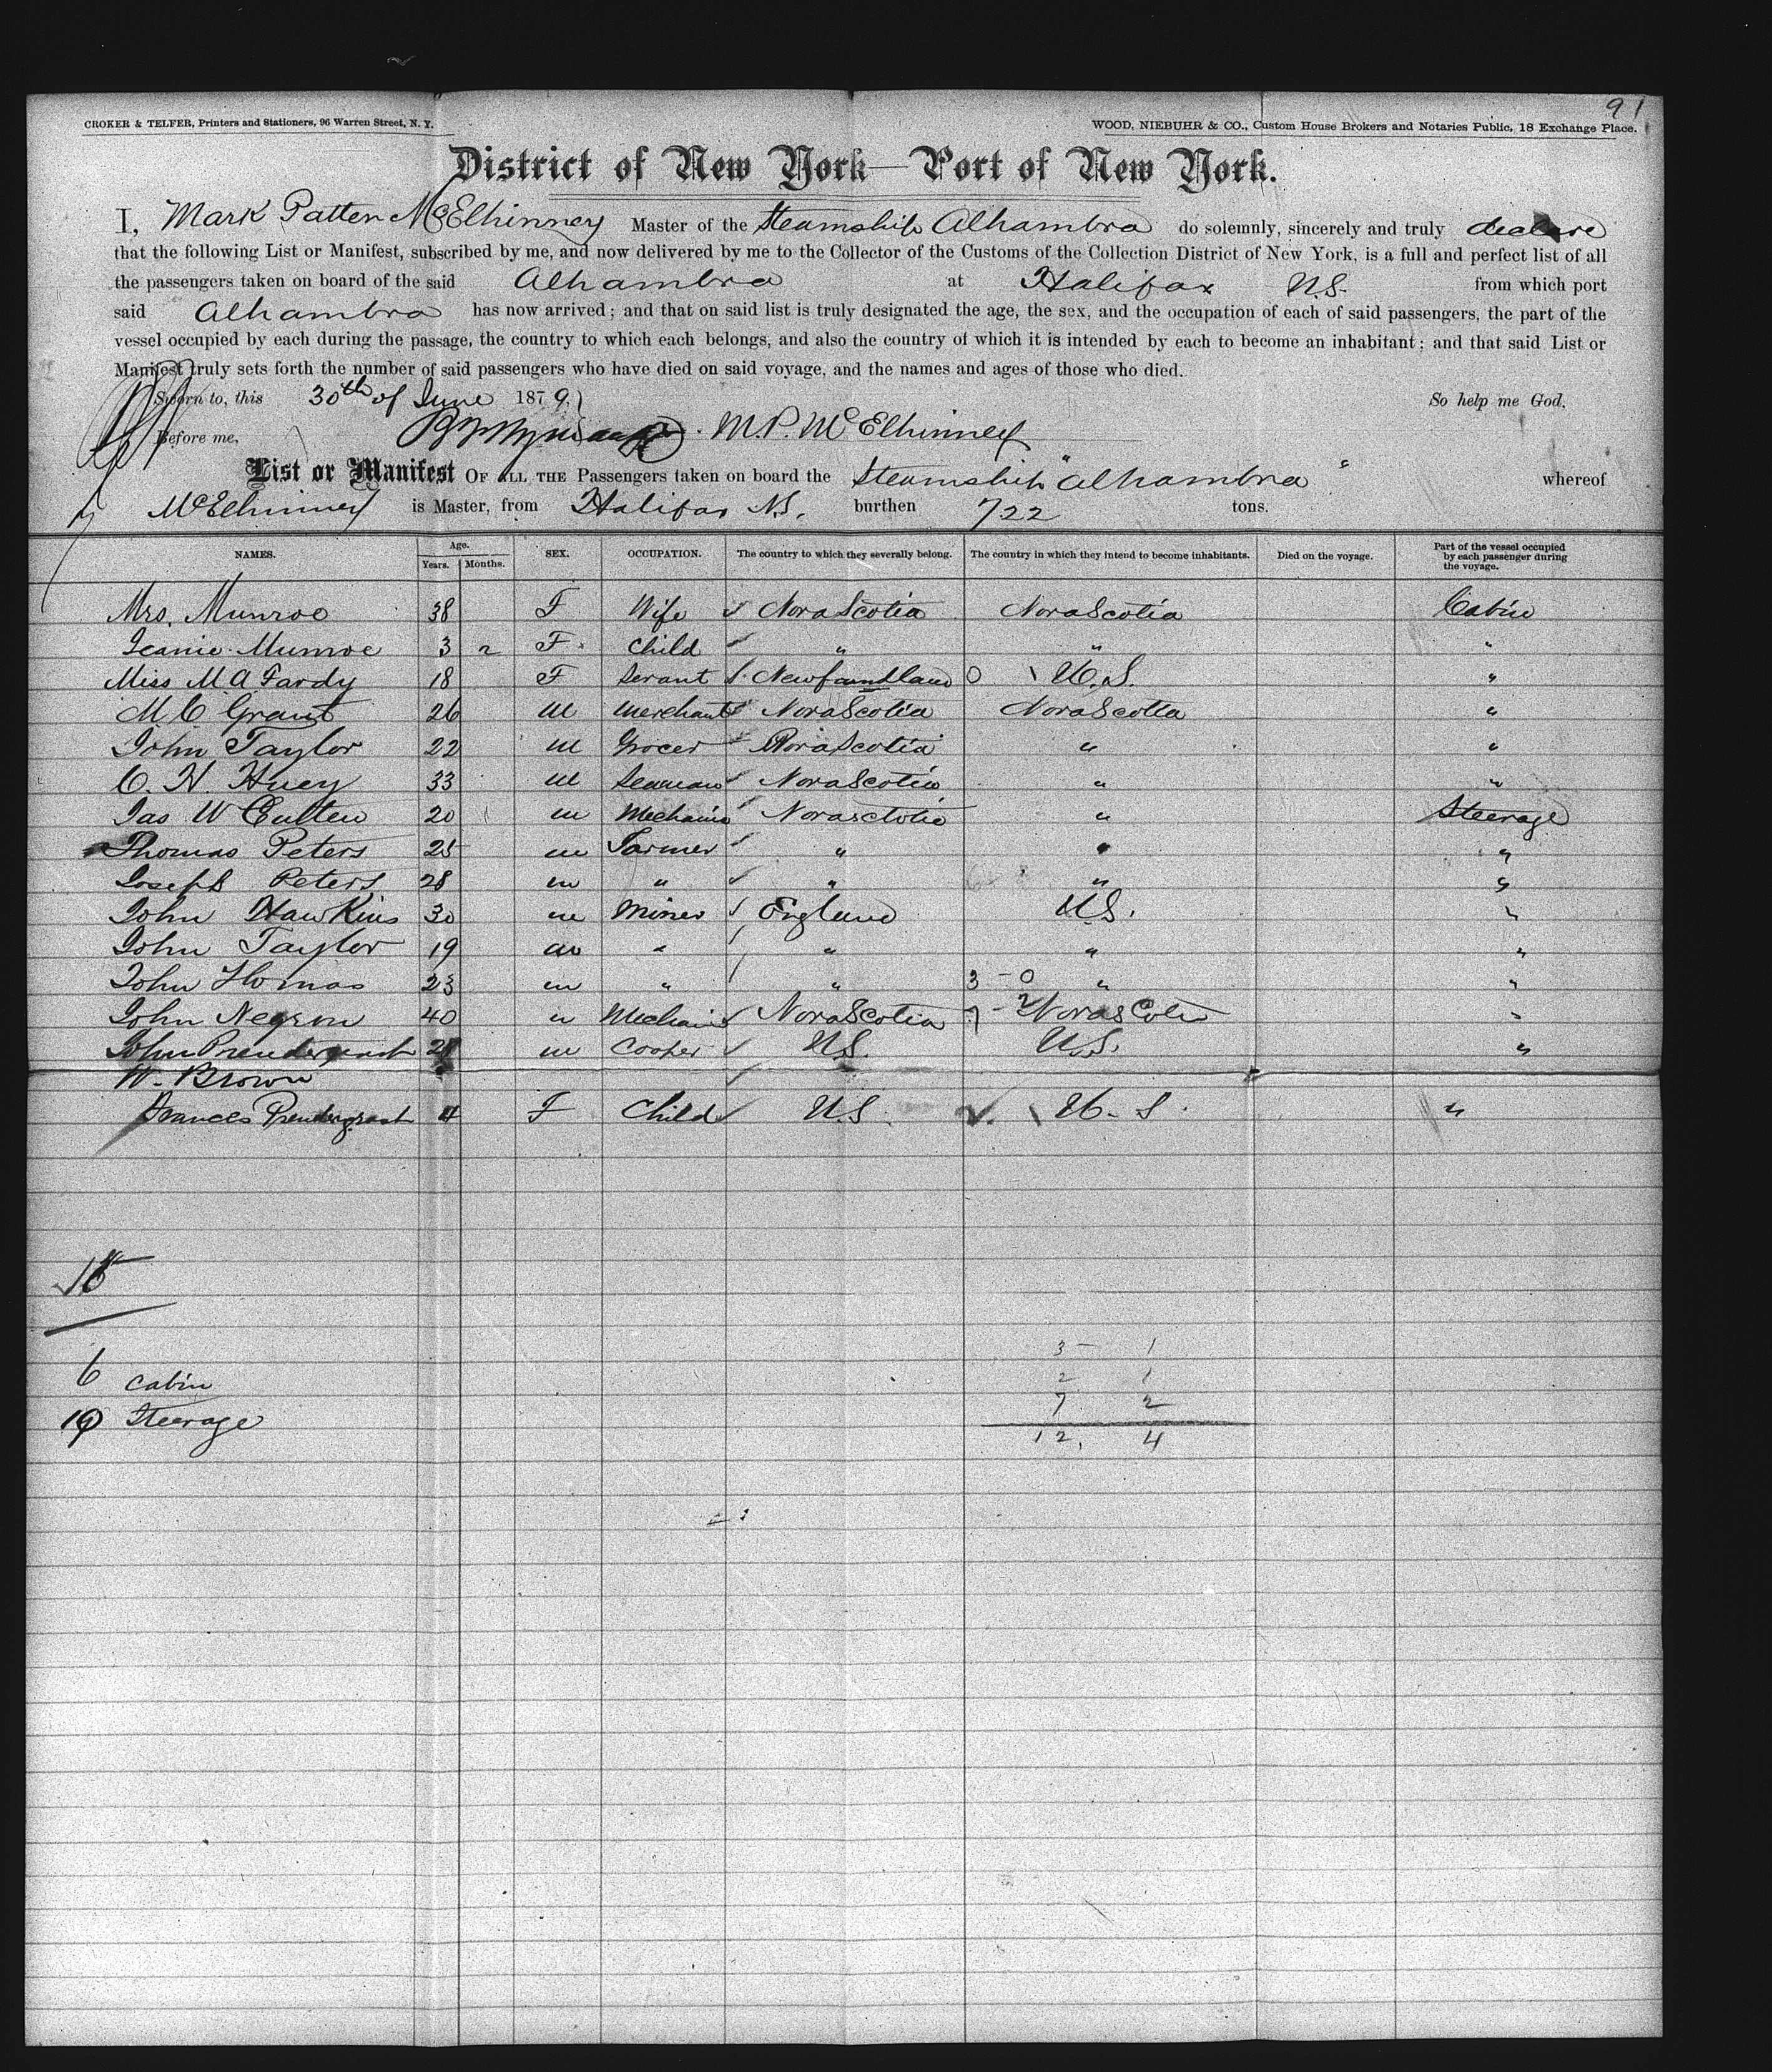 91
CROKER & TELFER, Printers and Stationers, 96 Warren Street, N. Y.
WOOD, NIEBUHR & CO., Custom House Brokers and Notaries Public, 18 Exchange Place.
District of New York—Port of New York.
I, Mark Patten McElhinney Master of the Steamship Alhambra do solemnly, sincerely and truly declare
that the following List or Manifest, subscribed by me, and now delivered by me to the Collector of the Customs of the Collection District of New York, is a full and perfect list of all
the passengers taken on board of the said Alhambra at Halifax N.S. from which port
said Alhambra has now arrived; and that on said list is truly designated the age, the sex, and the occupation of each of said passengers, the part of the
vessel occupied by each during the passage, the country to which each belongs, and also the country of which it is intended by each to become an inhabitant; and that said List or
Manifest truly sets forth the number of said passengers who have died on said voyage, and the names and ages of those who died.
Sworn to, this 30th of June 1879. So help me God.
Before me, M. P. McElhinney
List or Manifest OF ALL THE Passengers taken on board the Steamship "Alhambra" whereof
McElhinney is Master, from Halifax N.S. burthen 722 tons.
NAMES. Age. Years. Months. SEX. OCCUPATION. The country to which they severally belong. The country in which they intend to become inhabitants. Died on the voyage. Part of the vessel occupied by each passenger during the voyage.
Mrs. Munroe 38 F Wife Nova Scotia Nova Scotia Cabin
Jeanie Munroe 3 2 F Child " " "
Miss M A Fardy 18 F Servant Newfoundland 0 U.S. "
M C Grant 26 M Merchant Nova Scotia Nova Scotia "
John Taylor 22 M Grocer Nova Scotia " "
C. H. Huey 33 M Seaman Nova Scotia " "
Jas W Cullen 20 M Mechanic Nova Scotia " Steerage
Thomas Peters 25 M Farmer " " "
Joseph Peters 28 M " " " "
John Hawkins 30 M Miner England U.S. "
John Taylor 19 M " " " "
John Thomas 23 M " " 3 - 0 " "
John Negron 40 M Mechanic Nova Scotia 7 - 2 Nova Scotia "
John Prendergrast 28 M Cooper U.S. U.S. "
W. Brown
Frances Prendergrast 4 F Child U.S. U.S. "
16
3 - 1
6 Cabin
2 1
7 2
10 Steerage
12, 4